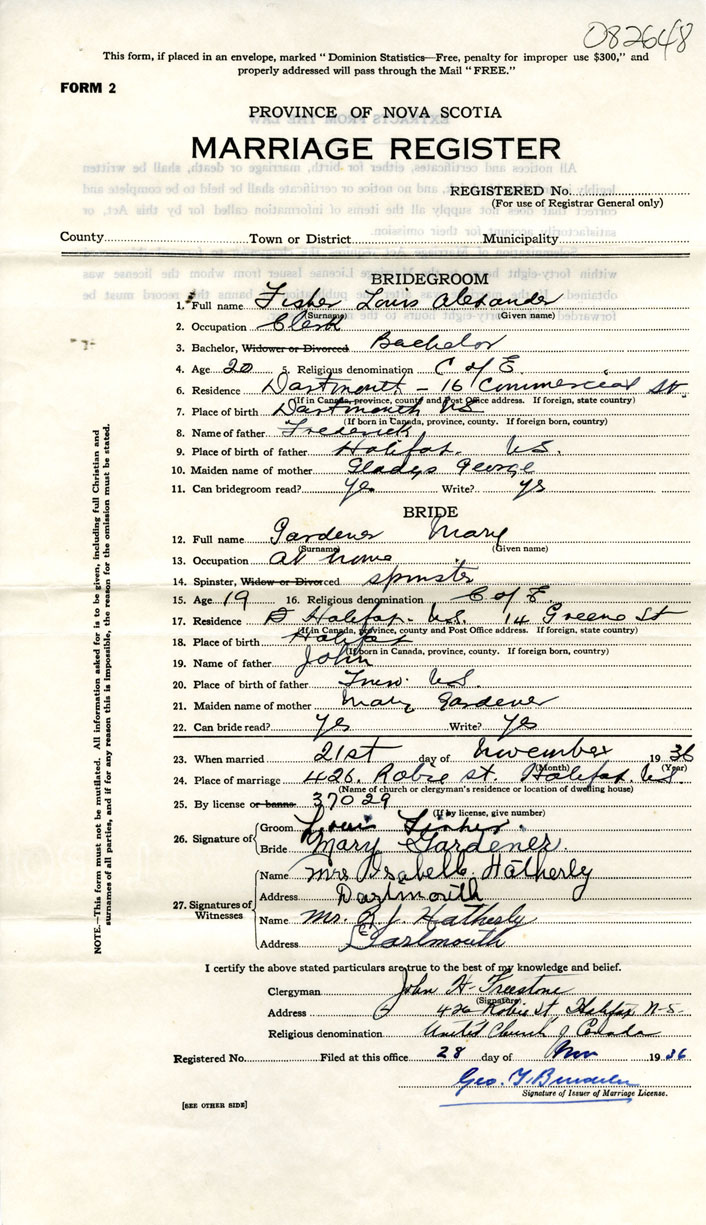 082648
This form, if placed in an envelope, marked "Dominion Statistics—Free, penalty for improper use $300," and
properly addressed will pass through the Mail "FREE."
FORM 2
PROVINCE OF NOVA SCOTIA
MARRIAGE REGISTER
REGISTERED No.
(For use of Registrar General only)
County Town or District Municipality
BRIDEGROOM
1. Full name Fisher Louis Alexander
(Surname) (Given name)
2. Occupation Clerk
3. Bachelor, Widower or Divorced Bachelor
4. Age 20 5. Religious denomination C of E.
6. Residence Dartmouth - 16 Commercial St.
(If in Canada, province, county and Post Office address. If foreign, state country)
7. Place of birth Dartmouth NS
(If born in Canada, province, county. If foreign born, country)
8. Name of father Frederick
9. Place of birth of father Halifax. NS.
10. Maiden name of mother Gladys George
11. Can bridegroom read? yes Write? yes
BRIDE
12. Full name Gardener Mary
(Surname) (Given name)
13. Occupation at home
14. Spinster, Widow or Divorced spinster
15. Age 19 16. Religious denomination C of E.
17. Residence Halifax. N.S. 14 Greene St
(If in Canada, province, county and Post Office address. If foreign, state country)
18. Place of birth Halifax
(If born in Canada, province, county. If foreign born, country)
19. Name of father John
20. Place of birth of father N.S.
21. Maiden name of mother Mary Gardener
22. Can bride read? yes Write? yes
23. When married 21st day of November 1936
(Month) (Year)
24. Place of marriage 426. Robie st. Halifax. N.S.
(Name of church or clergyman's residence or location of dwelling house)
25. By license or banns 37029
(If by license, give number)
26. Signature of Groom Louis Fisher.
Bride Mary Gardener.
27. Signatures of Witnesses
Name Mrs Isabell Hatherly
Address Dartmouth
Name Mr. B. J. Hatherly
Address Dartmouth
I certify the above stated particulars are true to the best of my knowledge and belief.
Clergyman John H. Freestone
(Signature)
Address 426 Robie St, Halifax N-S.
Religious denomination United Church of Canada
Registered No. Filed at this office 28 day of Nov 1936
Geo. T.
Signature of Issuer of Marriage License.
[SEE OTHER SIDE]
NOTE.—This form must not be mutilated. All information asked for is to be given, including full Christian and
surnames of all parties, and if for any reason this is impossible, the reason for the omission must be stated.